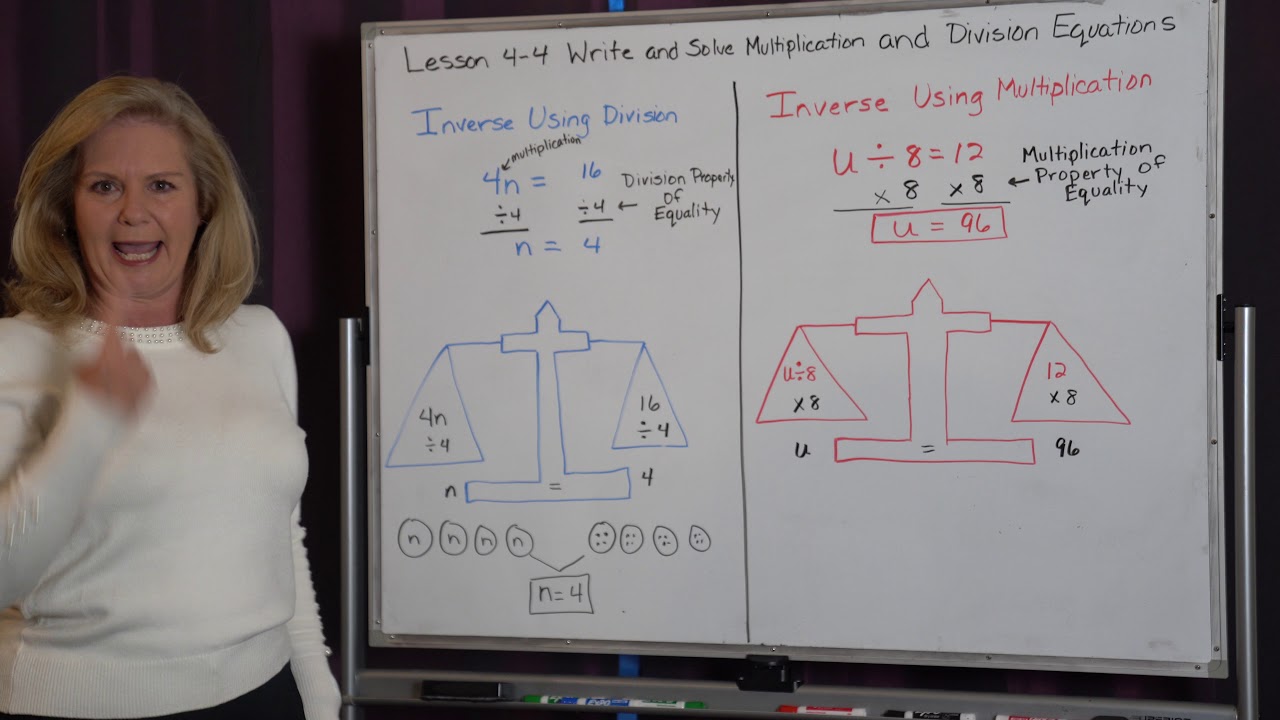 Lesson 4-4 Write and Solve Multiplication and Division Equations
Inverse Using Division
multiplication
4n = 16
÷4 ÷4
Division Property
of
Equality
n = 4
4n
÷4
16
÷4
n = 4
n n n n
n=4
Inverse Using Multiplication
u ÷ 8 = 12
×8 ×8
Multiplication
Property of
Equality
u = 96
u÷8
×8
12
×8
u = 96